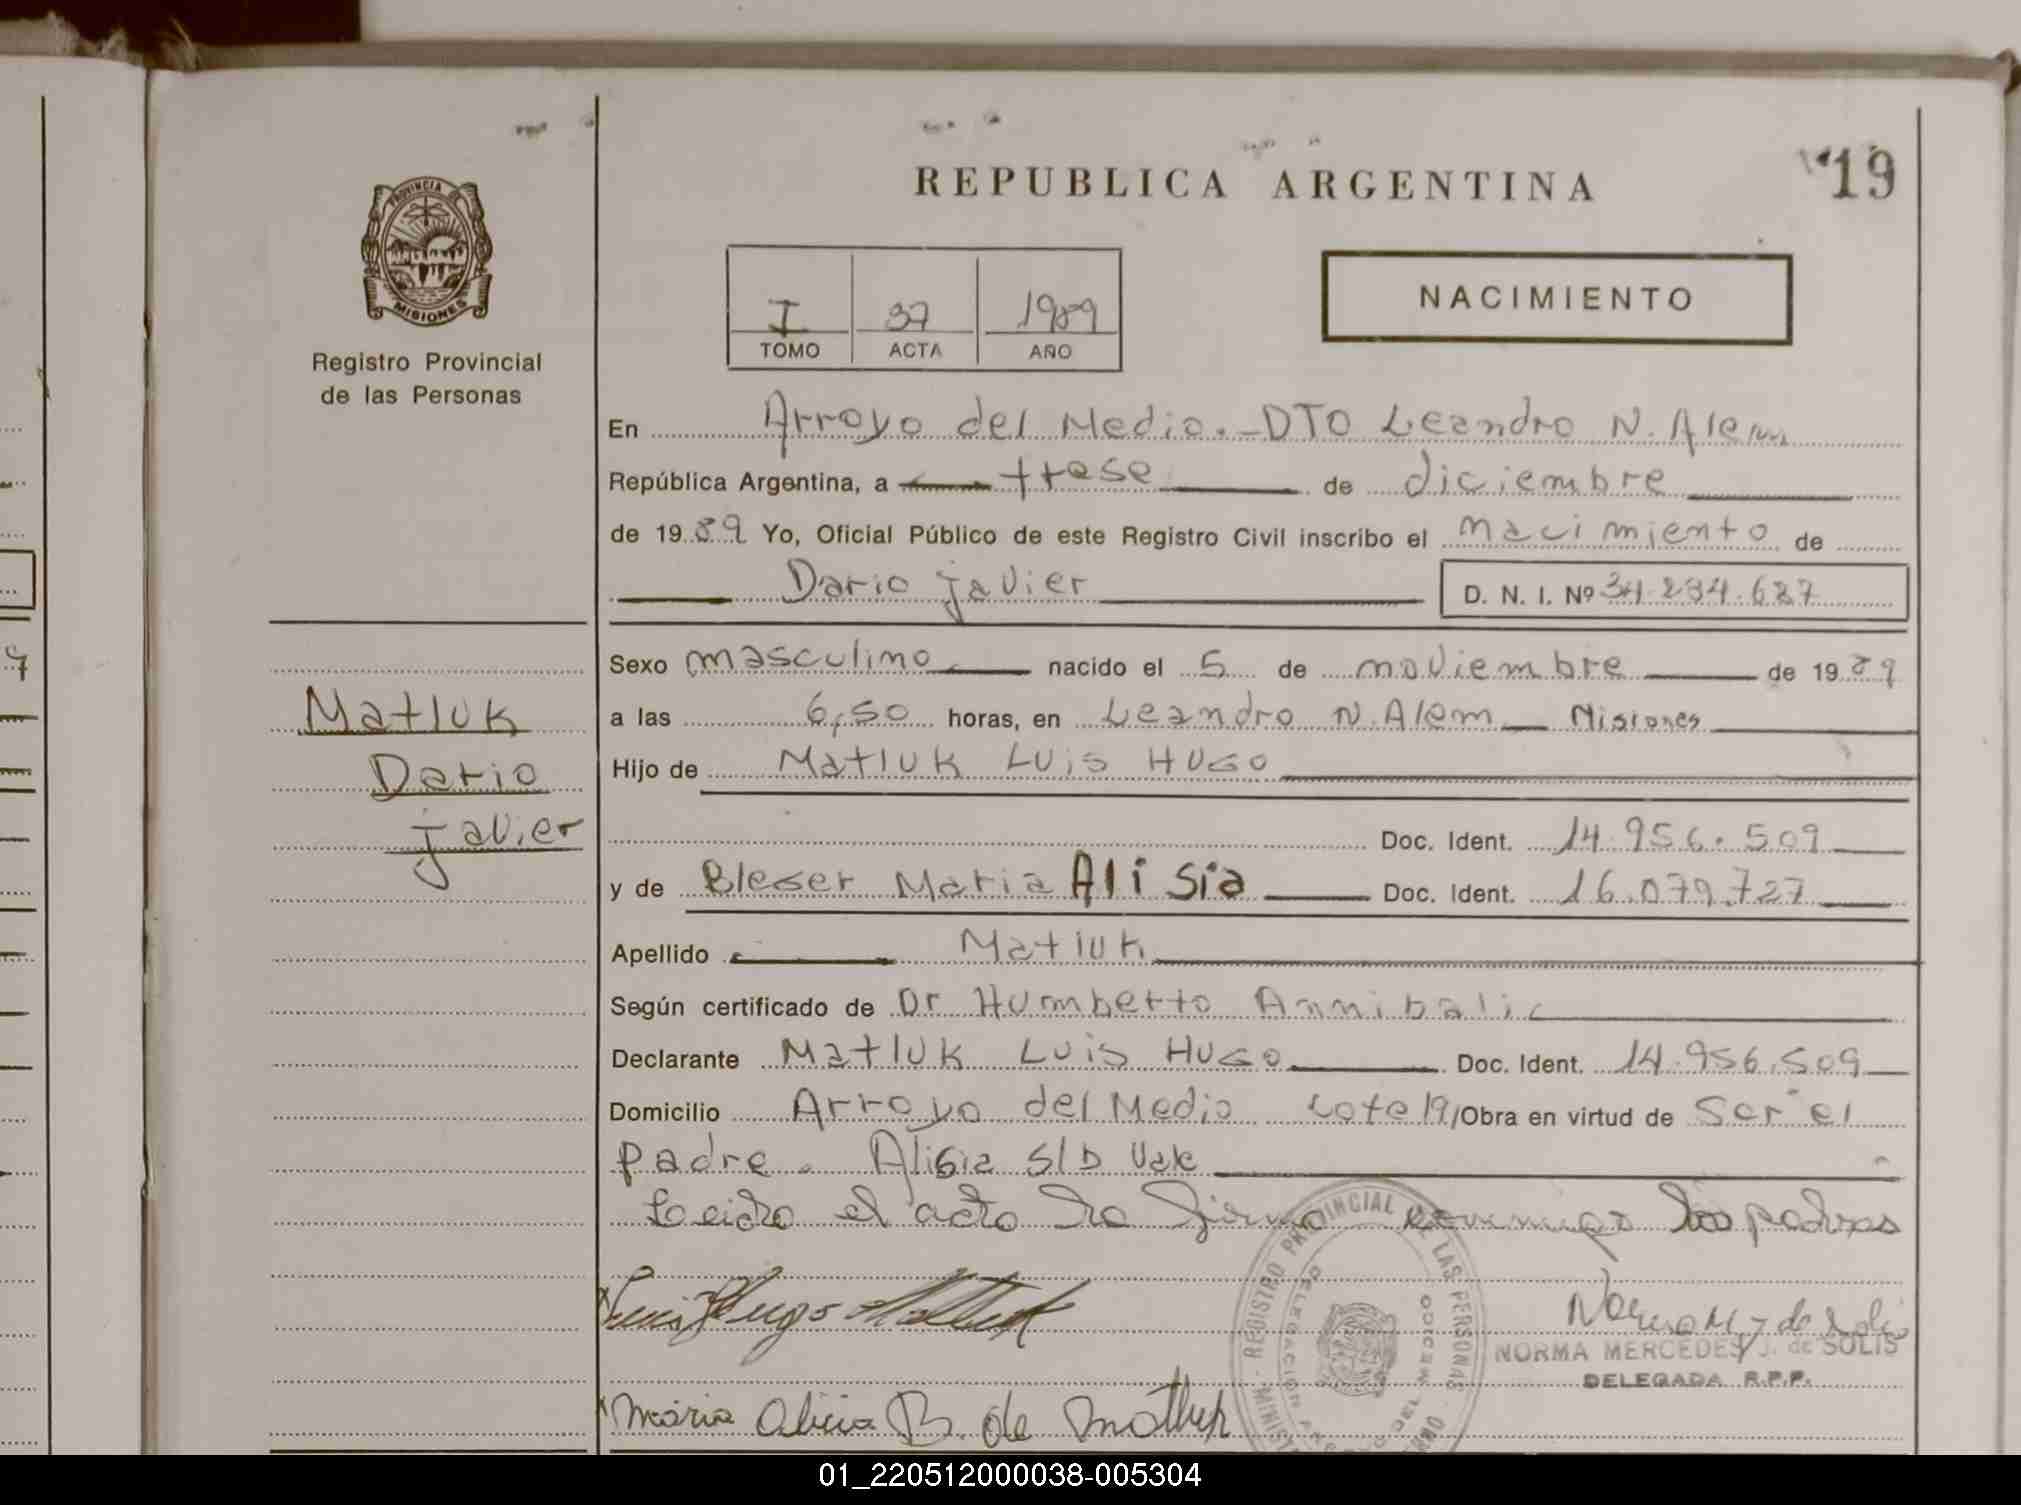 REPUBLICA ARGENTINA
19
PROVINCIA DE MISIONES
Registro Provincial
de las Personas
I 37 1989
TOMO ACTA AÑO
NACIMIENTO
En Arroyo del Medio.-DTO Leandro N. Alem
República Argentina, a trese de diciembre
de 1989 Yo, Oficial Público de este Registro Civil inscribo el nacimiento de
Dario javier D. N. I. Nº 34.234.627
Sexo masculino nacido el 5 de noviembre de 1989
a las 6,50 horas, en Leandro N. Alem Misiones
Hijo de Matluk Luis Hugo
Doc. Ident. 14.956.509
y de Bleser Maria Alisia Doc. Ident. 16.079.727
Apellido Matluk
Según certificado de Dr Humberto Annibali
Declarante Matluk Luis Hugo Doc. Ident. 14.956.509
Domicilio Arroyo del Medio Lote 19/Obra en virtud de Ser el
padre. Alisia S/b Vale
Leido el acto lo firma conmigo los padres
Matluk
Dario
javier
Luis Hugo Matluk
Maria Alicia B. de Matluk
REGISTRO PROVINCIAL DE LAS PERSONAS
NORMA MERCEDES J. de SOLIS
DELEGADA R.P.P.
01_220512000038-005304